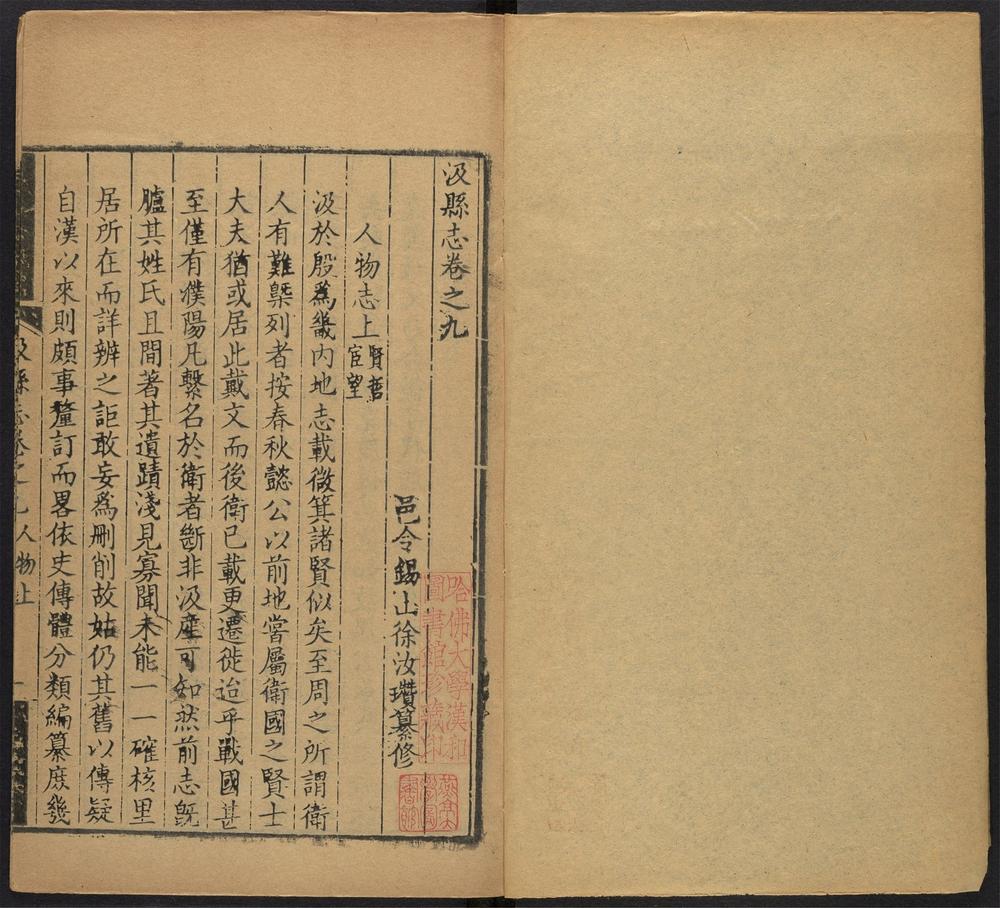 汲縣志卷之九
邑令錫山徐汝瓚纂修
人物志上 賢哲 宦望
汲於殷爲畿內地志載微箕諸賢似矣至周之所謂衛
人有難槩列者按春秋懿公以前地嘗屬衛國之賢士
大夫猶或居此戴文而後衛已載更遷徙迨乎戰國甚
至僅有濮陽凡繫名於衛者斷非汲產可知然前志旣
臚其姓氏且間著其遺蹟淺見寡聞未能一一確核里
居所在而詳辨之詎敢妄爲刪削故姑仍其舊以傳疑
自漢以來則頗事釐訂而畧依史傳體分類編纂庶幾
汲縣志卷之九 人物上 一
哈佛大學漢和
圖書館珍藏印